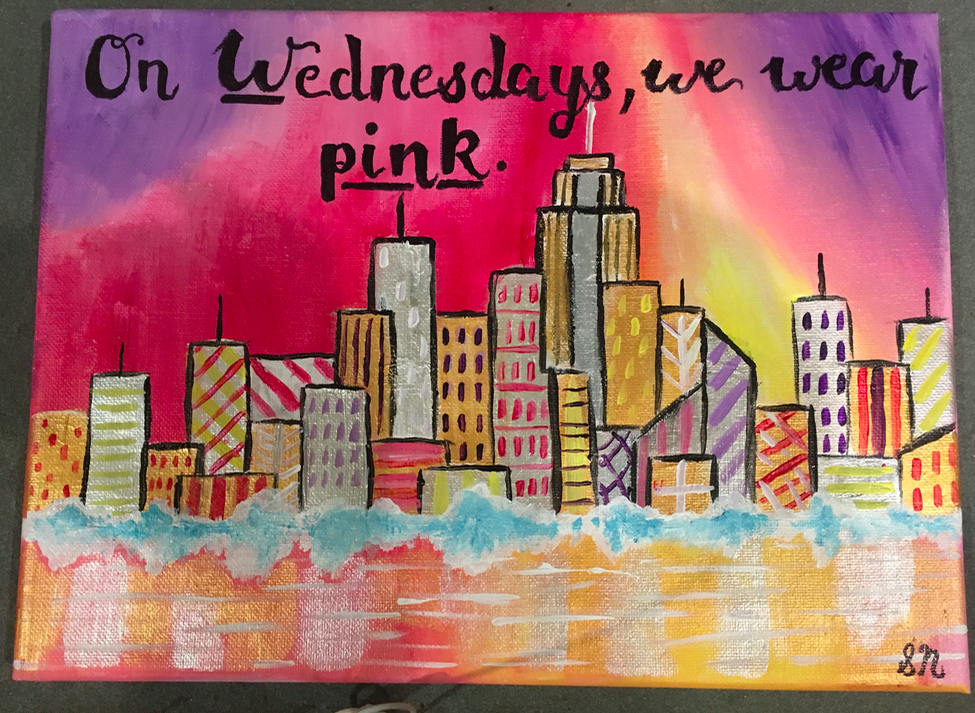 On Wednesdays, we wear
pink.
SN